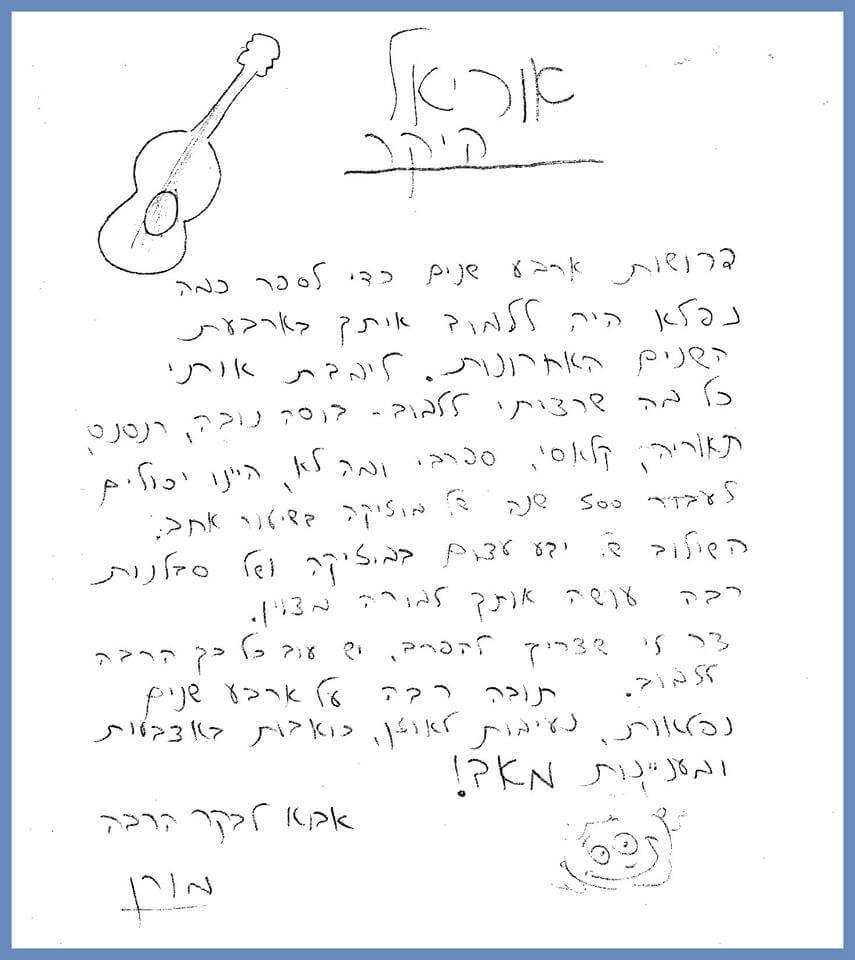 אוריאל
היקר
דרושות ארבע שנים כדי לספר כמה
נפלא היה ללמוד איתך בארבעת
השנים האחרונות. לימדת אותי
כל מה שרציתי ללמוד - בוסה נובה, רנסנס,
תאוריה, קלאסי, ספרדי ומה לא, היינו יכולים
לעבור 500 שנה של מוזיקה בשיעור אחד.
השילוב של ידע עצום במוזיקה ושל סבלנות
רבה עושה אותך למורה מצוין.
צר לי שצריך להפרד, יש עוד כל כך הרבה
ללמוד. תודה רבה על ארבע שנים
נפלאות, נעימות לאוזן, כואבות באצבעות
ומעניינות מאד!
אבוא לבקר הרבה
מורן